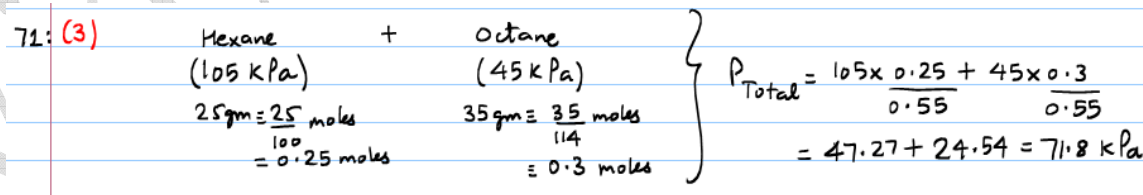 71: (3) Hexane + Octane
(105 kPa) (45 kPa)
25gm ≡ 25/100 moles 35gm ≡ 35/114 moles
= 0.25 moles ≡ 0.3 moles
P Total = 105 x 0.25/0.55 + 45 x 0.3/0.55
= 47.27 + 24.54 = 71.8 kPa